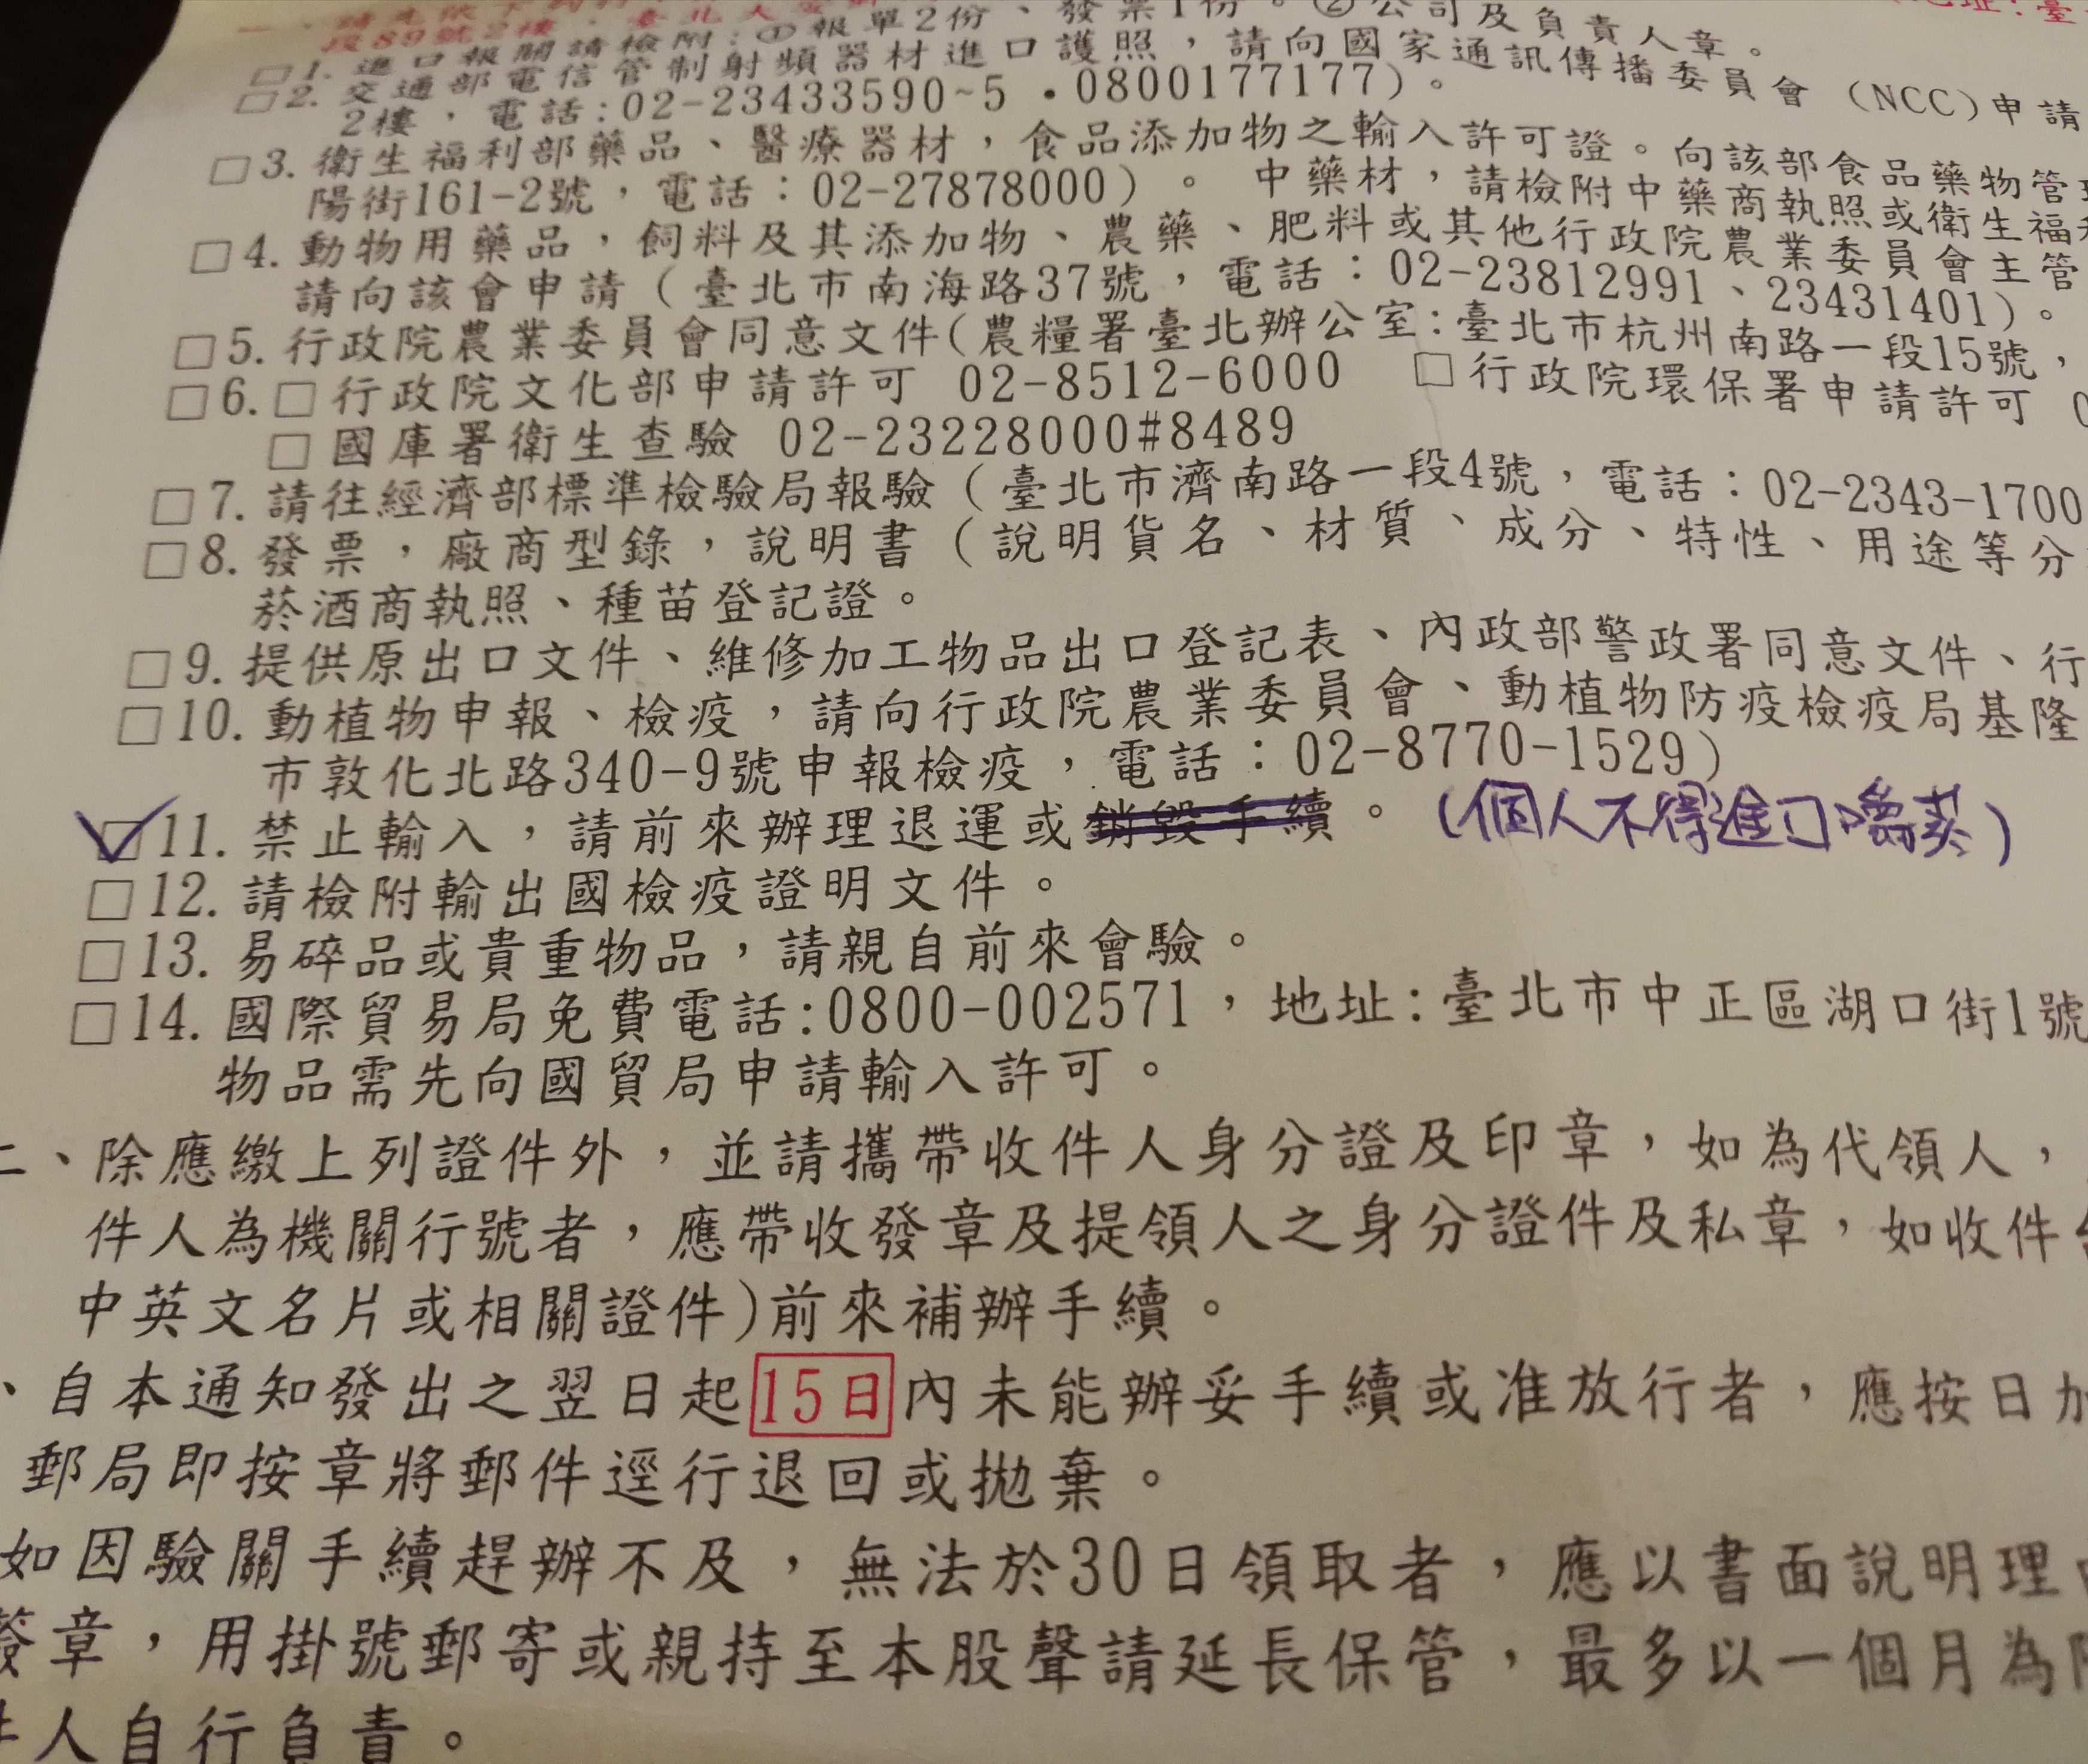 段89號2樓
□1. 進口報關請檢附:①報單2份、發票1份。②公司及負責人章。
□2. 交通部電信管制射頻器材進口護照，請向國家通訊傳播委員會（NCC)申請
2樓，電話:02-23433590~5 ・0800177177)。
□3. 衛生福利部藥品、醫療器材，食品添加物之輸入許可證。向該部食品藥物管
陽街161-2號，電話：02-27878000）。 中藥材，請檢附中藥商執照或衛生福
□4. 動物用藥品，飼料及其添加物、農藥、肥料或其他行政院農業委員會主管
請向該會申請（臺北市南海路37號，電話：02-23812991、23431401)。
□5. 行政院農業委員會同意文件(農糧署臺北辦公室:臺北市杭州南路一段15號，
□6. □行政院文化部申請許可 02-8512-6000 □行政院環保署申請許可
□國庫署衛生查驗 02-23228000#8489
□7. 請往經濟部標準檢驗局報驗（臺北市濟南路一段4號，電話：02-2343-1700
□8. 發票，廠商型錄，說明書（說明貨名、材質、成分、特性、用途等分
菸酒商執照、種苗登記證。
□9. 提供原出口文件、維修加工物品出口登記表、內政部警政署同意文件、行
□10. 動植物申報、檢疫，請向行政院農業委員會、動植物防疫檢疫局基隆
市敦化北路340-9號申報檢疫，電話：02-8770-1529）
☑11. 禁止輸入，請前來辦理退運或銷毀手續。（個人不得進口嚼菸）
□12. 請檢附輸出國檢疫證明文件。
□13. 易碎品或貴重物品，請親自前來會驗。
□14. 國際貿易局免費電話:0800-002571，地址:臺北市中正區湖口街1號
物品需先向國貿局申請輸入許可。
二、除應繳上列證件外，並請攜帶收件人身分證及印章，如為代領人，
件人為機關行號者，應帶收發章及提領人之身分證件及私章，如收件
中英文名片或相關證件)前來補辦手續。
、自本通知發出之翌日起15日內未能辦妥手續或准放行者，應按日加
郵局即按章將郵件逕行退回或拋棄。
如因驗關手續趕辦不及，無法於30日領取者，應以書面說明理
簽章，用掛號郵寄或親持至本股聲請延長保管，最多以一個月為限
件人自行負責。